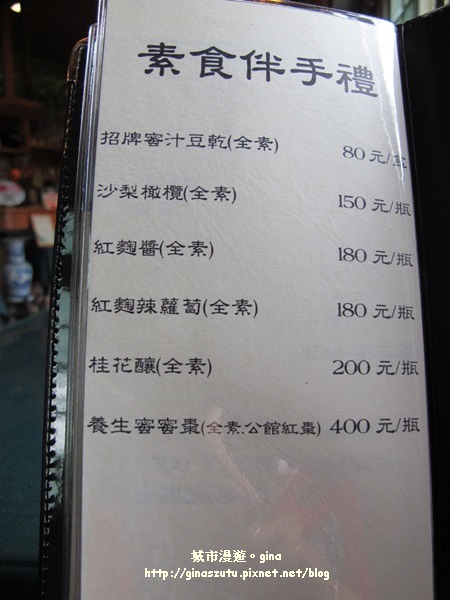 素食伴手禮
招牌蜜汁豆乾(全素) 80 元/盒
沙梨橄欖(全素) 150 元/瓶
紅麴醬(全素) 180 元/瓶
紅麴辣蘿蔔(全素) 180 元/瓶
桂花釀(全素) 200 元/瓶
養生蜜蜜棗(全素.公館紅棗) 400 元/瓶
城市漫遊。gina
http://ginaszutu.pixnet.net/blog